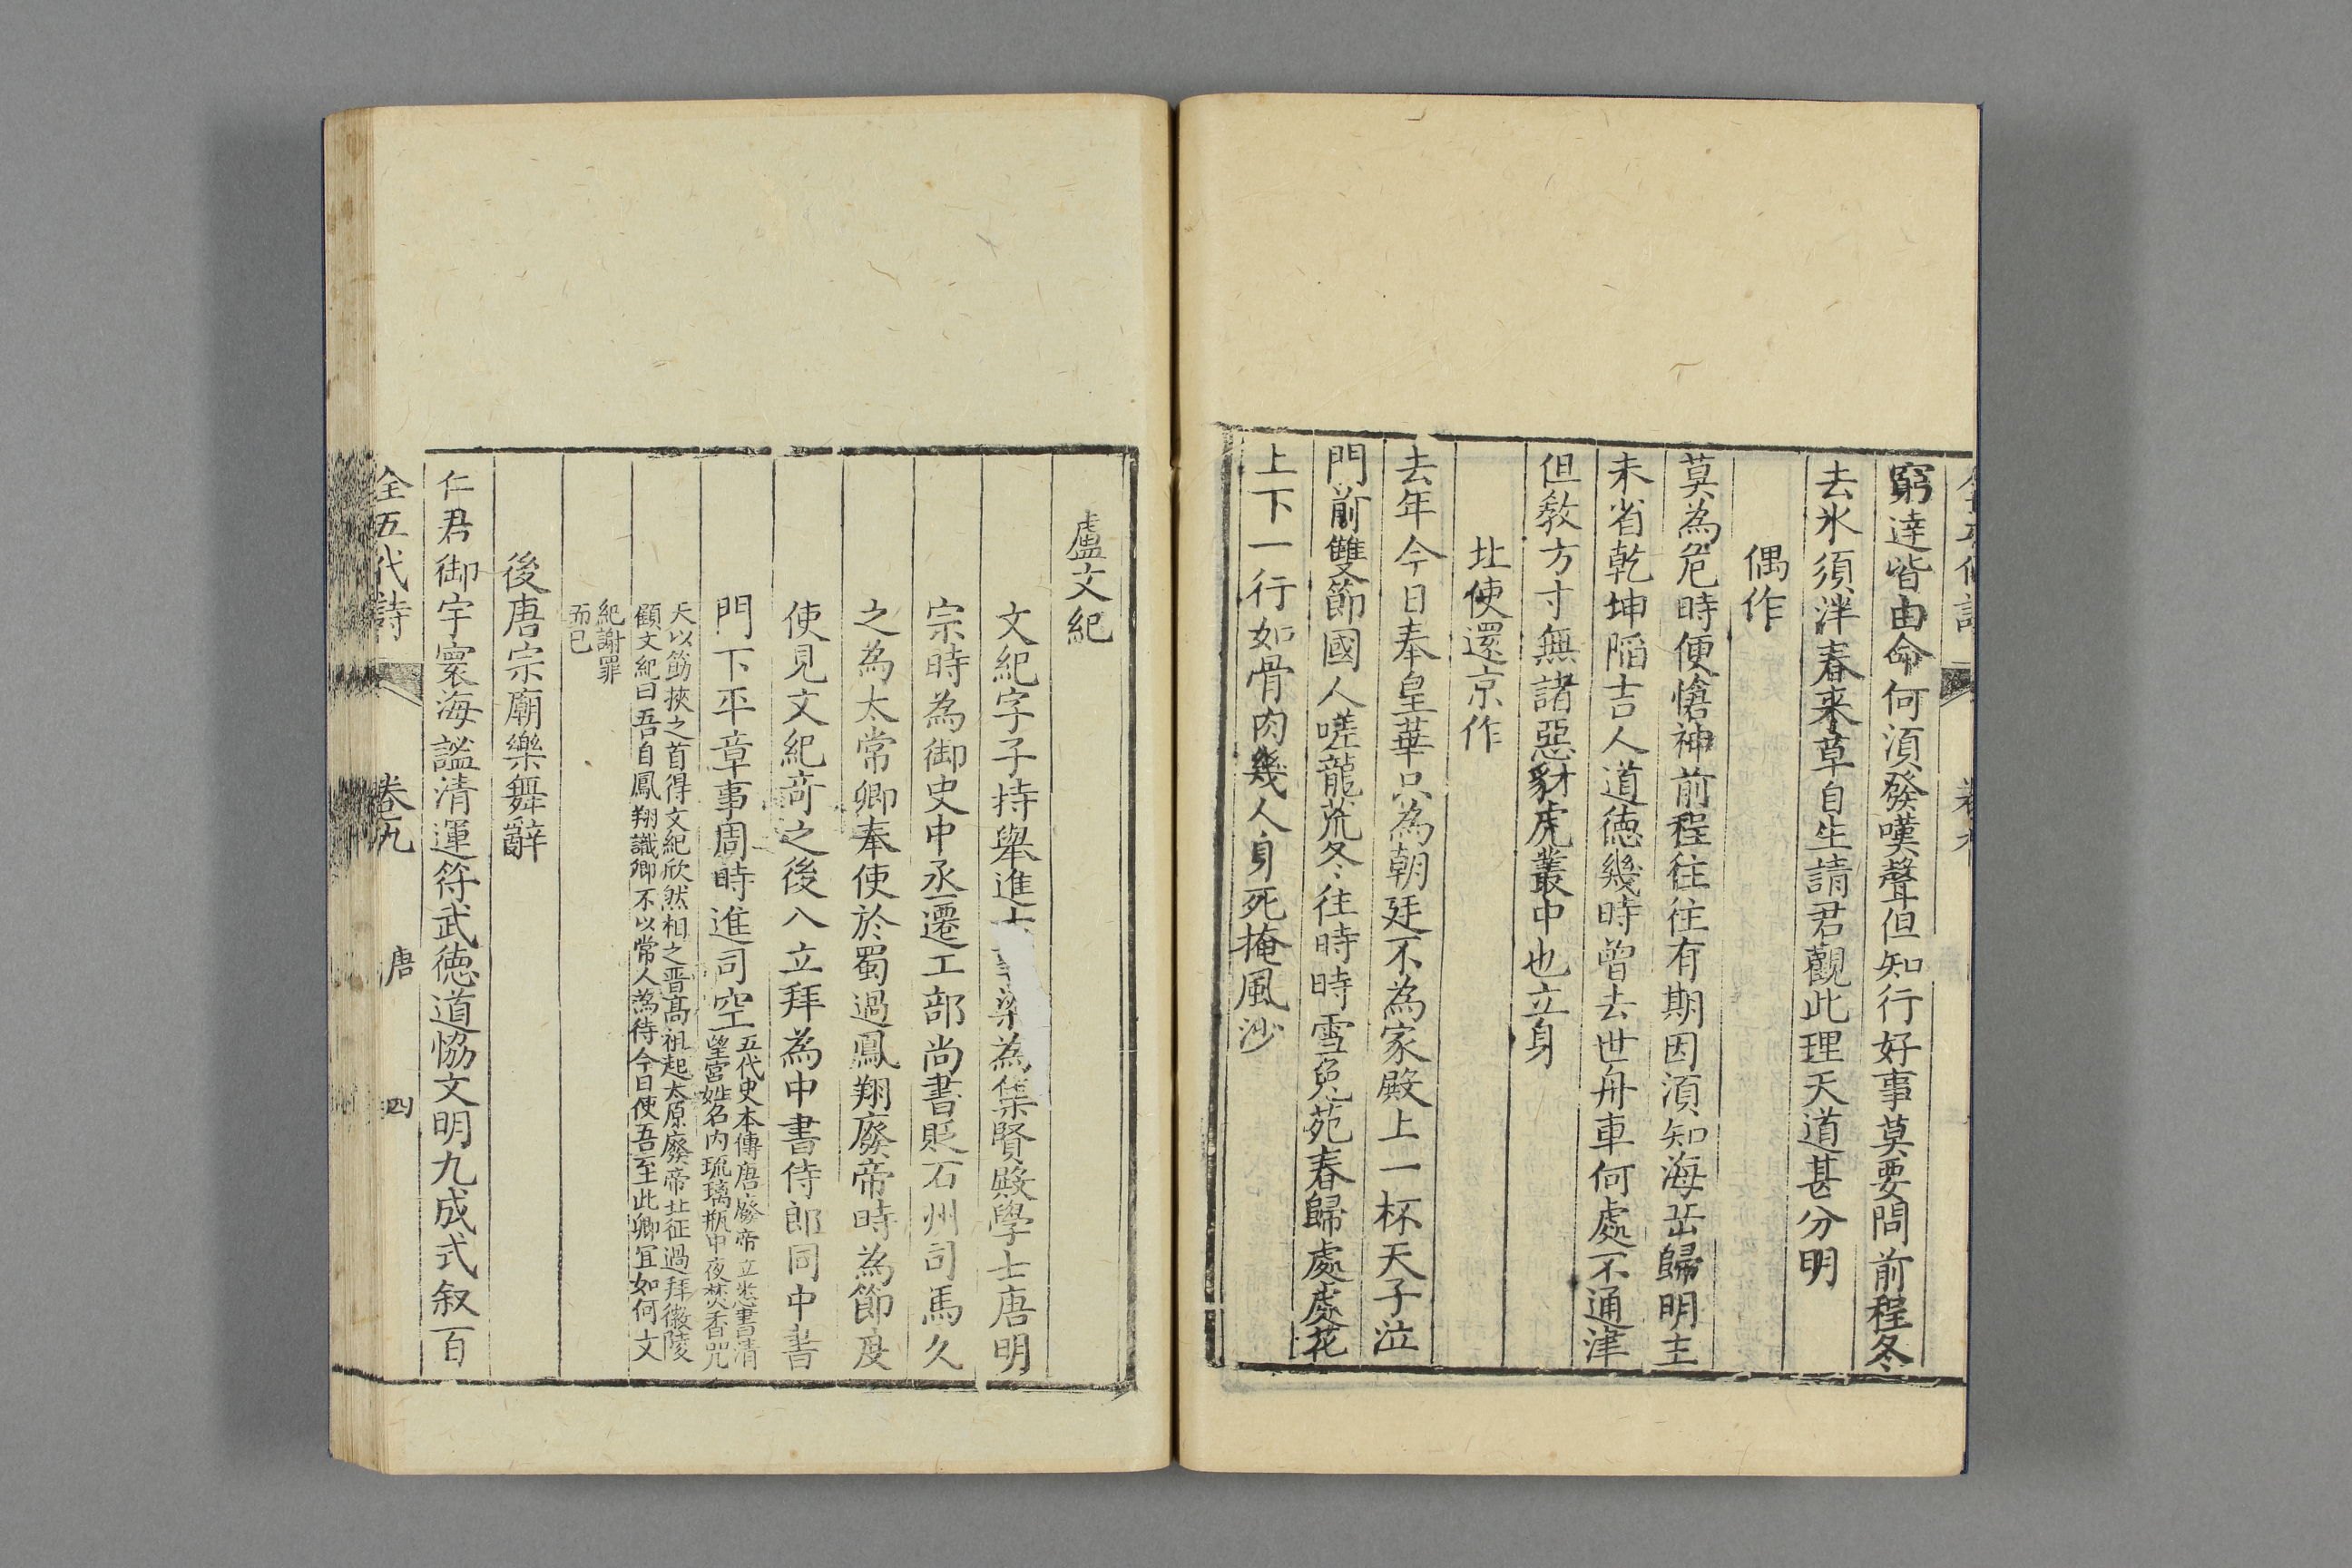 窮達皆由命何須發嘆聲但知行好事莫要問前程冬
去氷須泮春来草自生請君觀此理天道甚分明
偶作
莫為危時便愴神前程往往有期因須知海岳歸明主
未省乾坤陷吉人道德幾時曾去世舟車何處不通津
但教方寸無諸惡豺虎叢中也立身
北使還京作
去年今日奉皇華只為朝廷不為家殿上一杯天子泣
門前雙節國人嗟龍荒冬往時時雪兔苑春歸處處花
上下一行如骨肉幾人身死掩風沙
盧文紀
文紀字子持舉進士事梁為集賢殿學士唐明
宗時為御史中丞遷工部尚書貶石州司馬久
之為太常卿奉使於蜀過鳳翔廢帝時為節度
使見文紀奇之後入立拜為中書侍郎同中書
門下平章事周時進司空
五代史本傳唐廢帝立悉書清
望官姓名内琉璃瓶中夜焚香咒
天以筯挾之首得文紀欣然相之晋高祖起太原廢帝北征過拜徽陵
顧文紀曰吾自鳳翔識卿不以常人為待今日使吾至此卿宜如何文
紀謝罪
而已
後唐宗廟樂舞辭
仁君御宇寰海謐清運符武德道協文明九成式叙百
全五代詩 卷九 唐 四